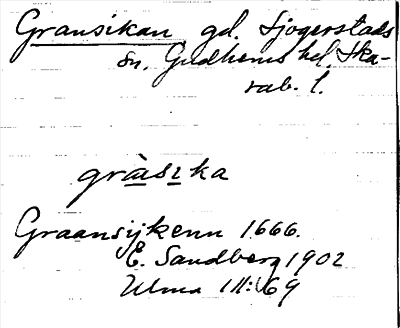 Gransikan gd. Sjogerstads
sn. Gudhems hd. Ska-
rab. l.
gràsika
Graansijkenn 1666.
E. Sandberg 1902
Ulma 111:69